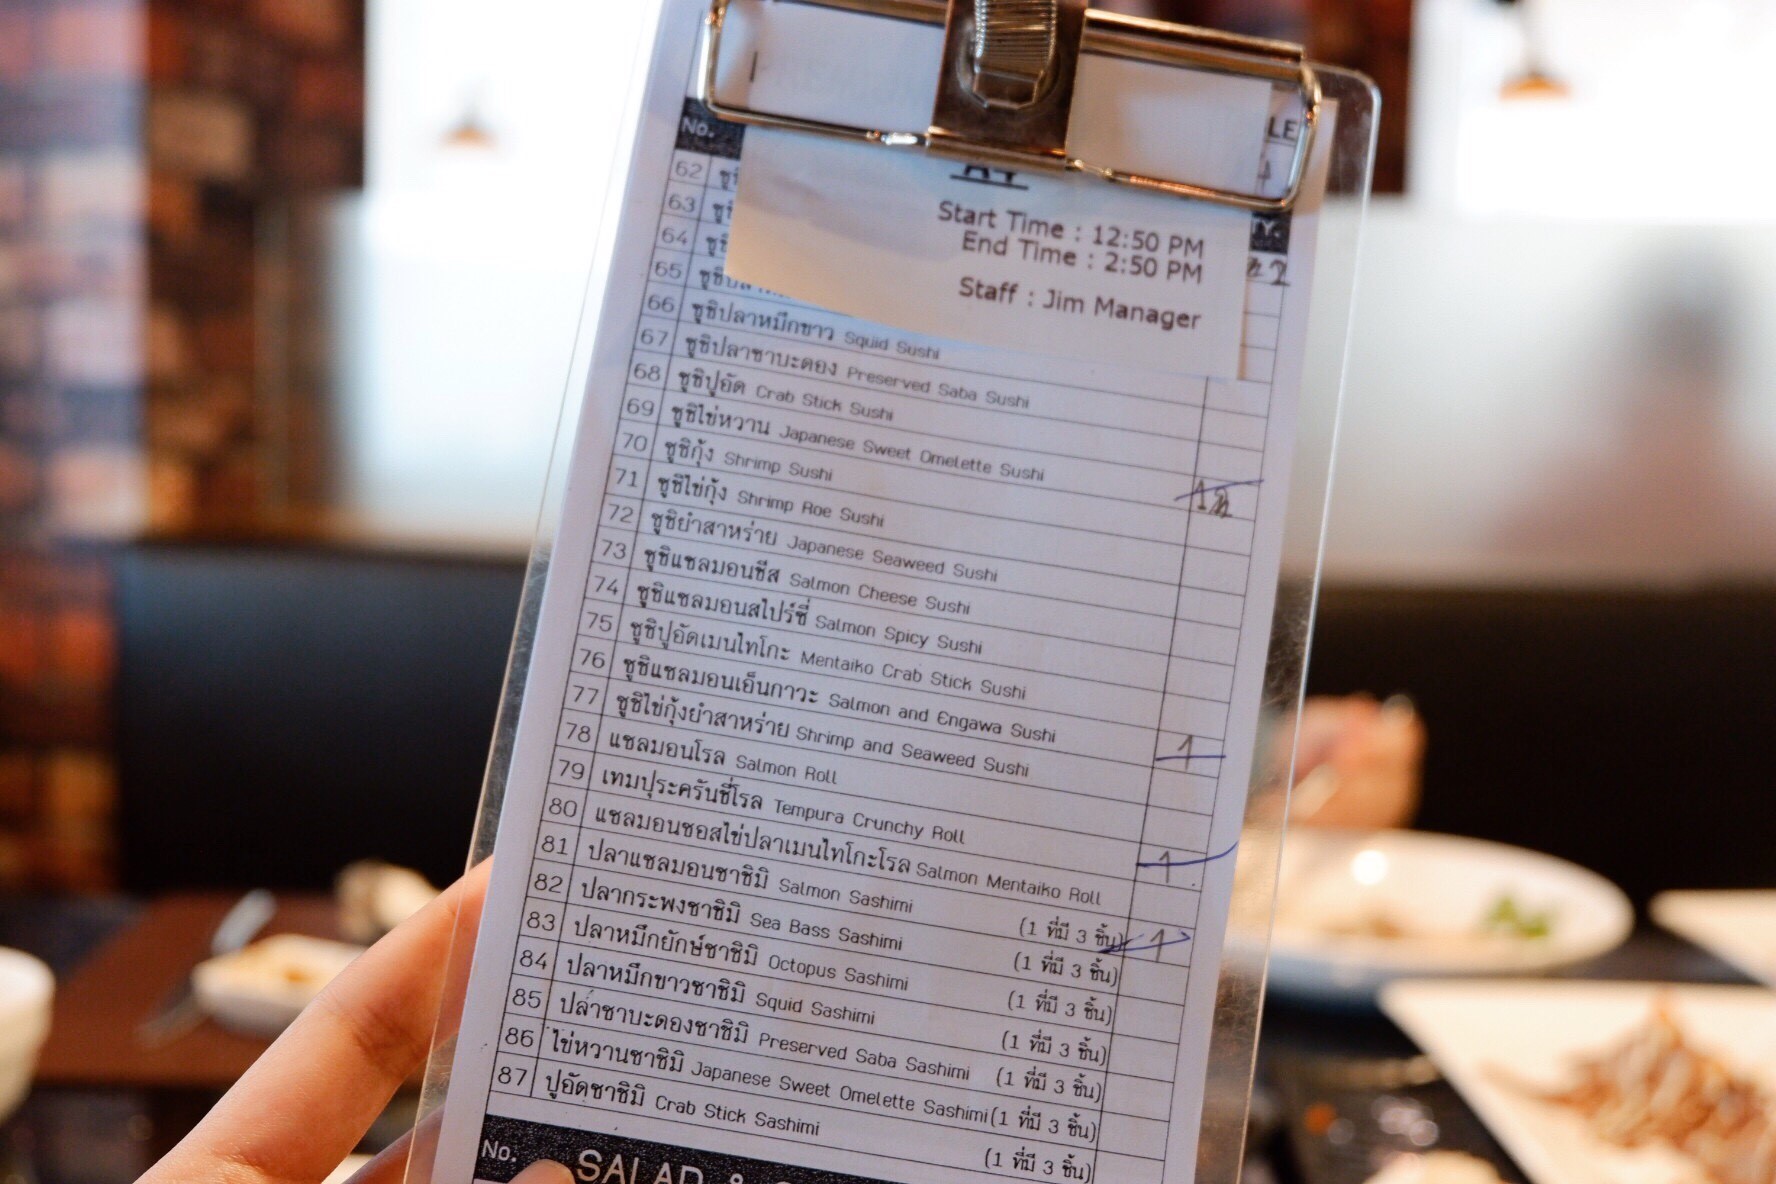 No.
LE
A4
Start Time : 12:50 PM
End Time : 2:50 PM
Staff : Jim Manager
TY.
62
63
64
65
66 ซูชิปลาหมึกขาว Squid Sushi
67 ซูชิปลาซาบะดอง Preserved Saba Sushi
68 ซูชิปูอัด Crab Stick Sushi
69 ซูชิไข่หวาน Japanese Sweet Omelette Sushi
70 ซูชิกุ้ง Shrimp Sushi
71 ซูชิไข่กุ้ง Shrimp Roe Sushi
72 ซูชิยำสาหร่าย Japanese Seaweed Sushi
73 ซูชิแซลมอนชีส Salmon Cheese Sushi
74 ซูชิแซลมอนสไปร์ซี่ Salmon Spicy Sushi
75 ซูชิปูอัดเมนไทโกะ Mentaiko Crab Stick Sushi
76 ซูชิแซลมอนเอ็นกาวะ Salmon and Engawa Sushi 1
77 ซูชิไข่กุ้งยำสาหร่าย Shrimp and Seaweed Sushi
78 แซลมอนโรล Salmon Roll
79 เทมปุระครันชี่โรล Tempura Crunchy Roll
80 แซลมอนซอสไข่ปลาเมนไทโกะโรล Salmon Mentaiko Roll 1
81 ปลาแซลมอนซาชิมิ Salmon Sashimi (1 ที่มี 3 ชิ้น) 1
82 ปลากระพงซาชิมิ Sea Bass Sashimi (1 ที่มี 3 ชิ้น)
83 ปลาหมึกยักษ์ซาชิมิ Octopus Sashimi (1 ที่มี 3 ชิ้น)
84 ปลาหมึกขาวซาชิมิ Squid Sashimi (1 ที่มี 3 ชิ้น)
85 ปลาซาบะดองซาชิมิ Preserved Saba Sashimi (1 ที่มี 3 ชิ้น)
86 ไข่หวานซาชิมิ Japanese Sweet Omelette Sashimi (1 ที่มี 3 ชิ้น)
87 ปูอัดซาชิมิ Crab Stick Sashimi (1 ที่มี 3 ชิ้น)
No. SALAD &